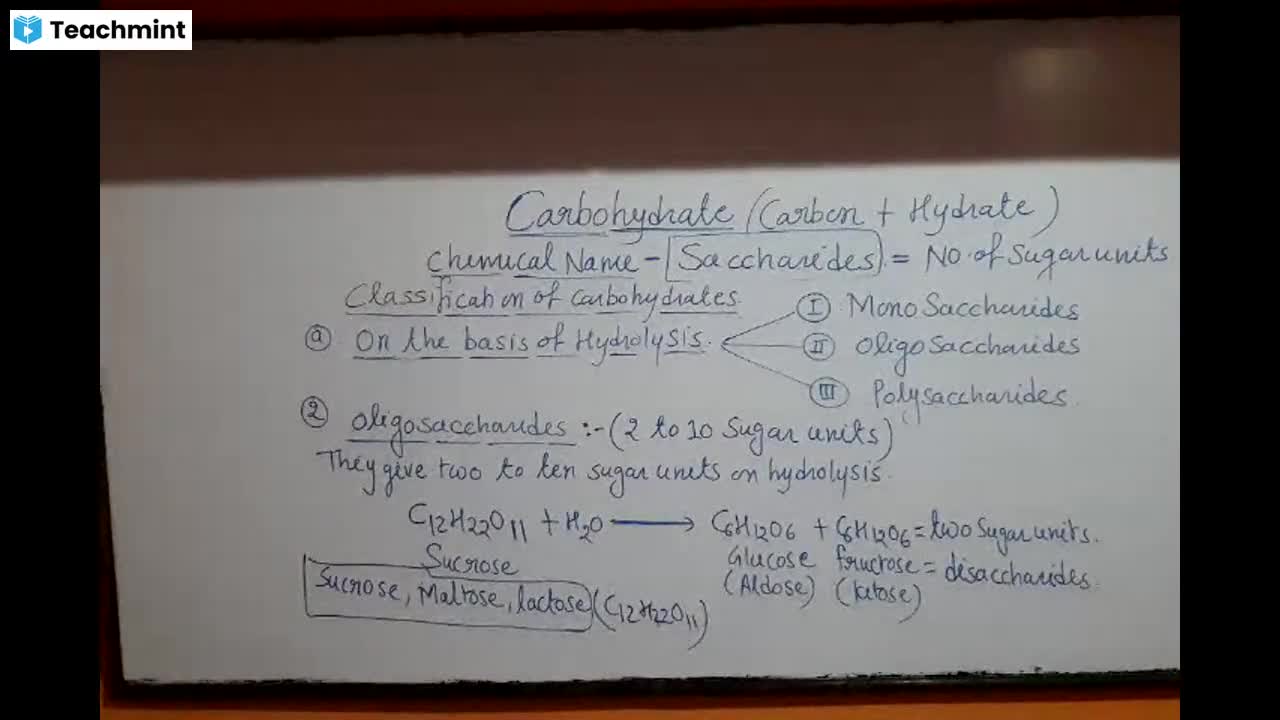 Teachmint
Carbohydrate (Carbon + Hydrate)
Chemical Name - Saccharides = No. of Sugar units
Classification of carbohydrates
ⓐ On the basis of Hydrolysis.
Ⓘ MonoSaccharides
Ⅱ OligoSaccharides
Ⅲ Polysaccharides.
② Oligosaccharides :- (2 to 10 Sugar units)
They give two to ten sugar units on hydrolysis.
C12H22O11 + H2O → C6H12O6 + C6H12O6 = two Sugar units.
Sucrose Glucose fructose = disaccharides.
(Aldose) (ketose)
Sucrose, Maltose, lactose (C12H22O11)